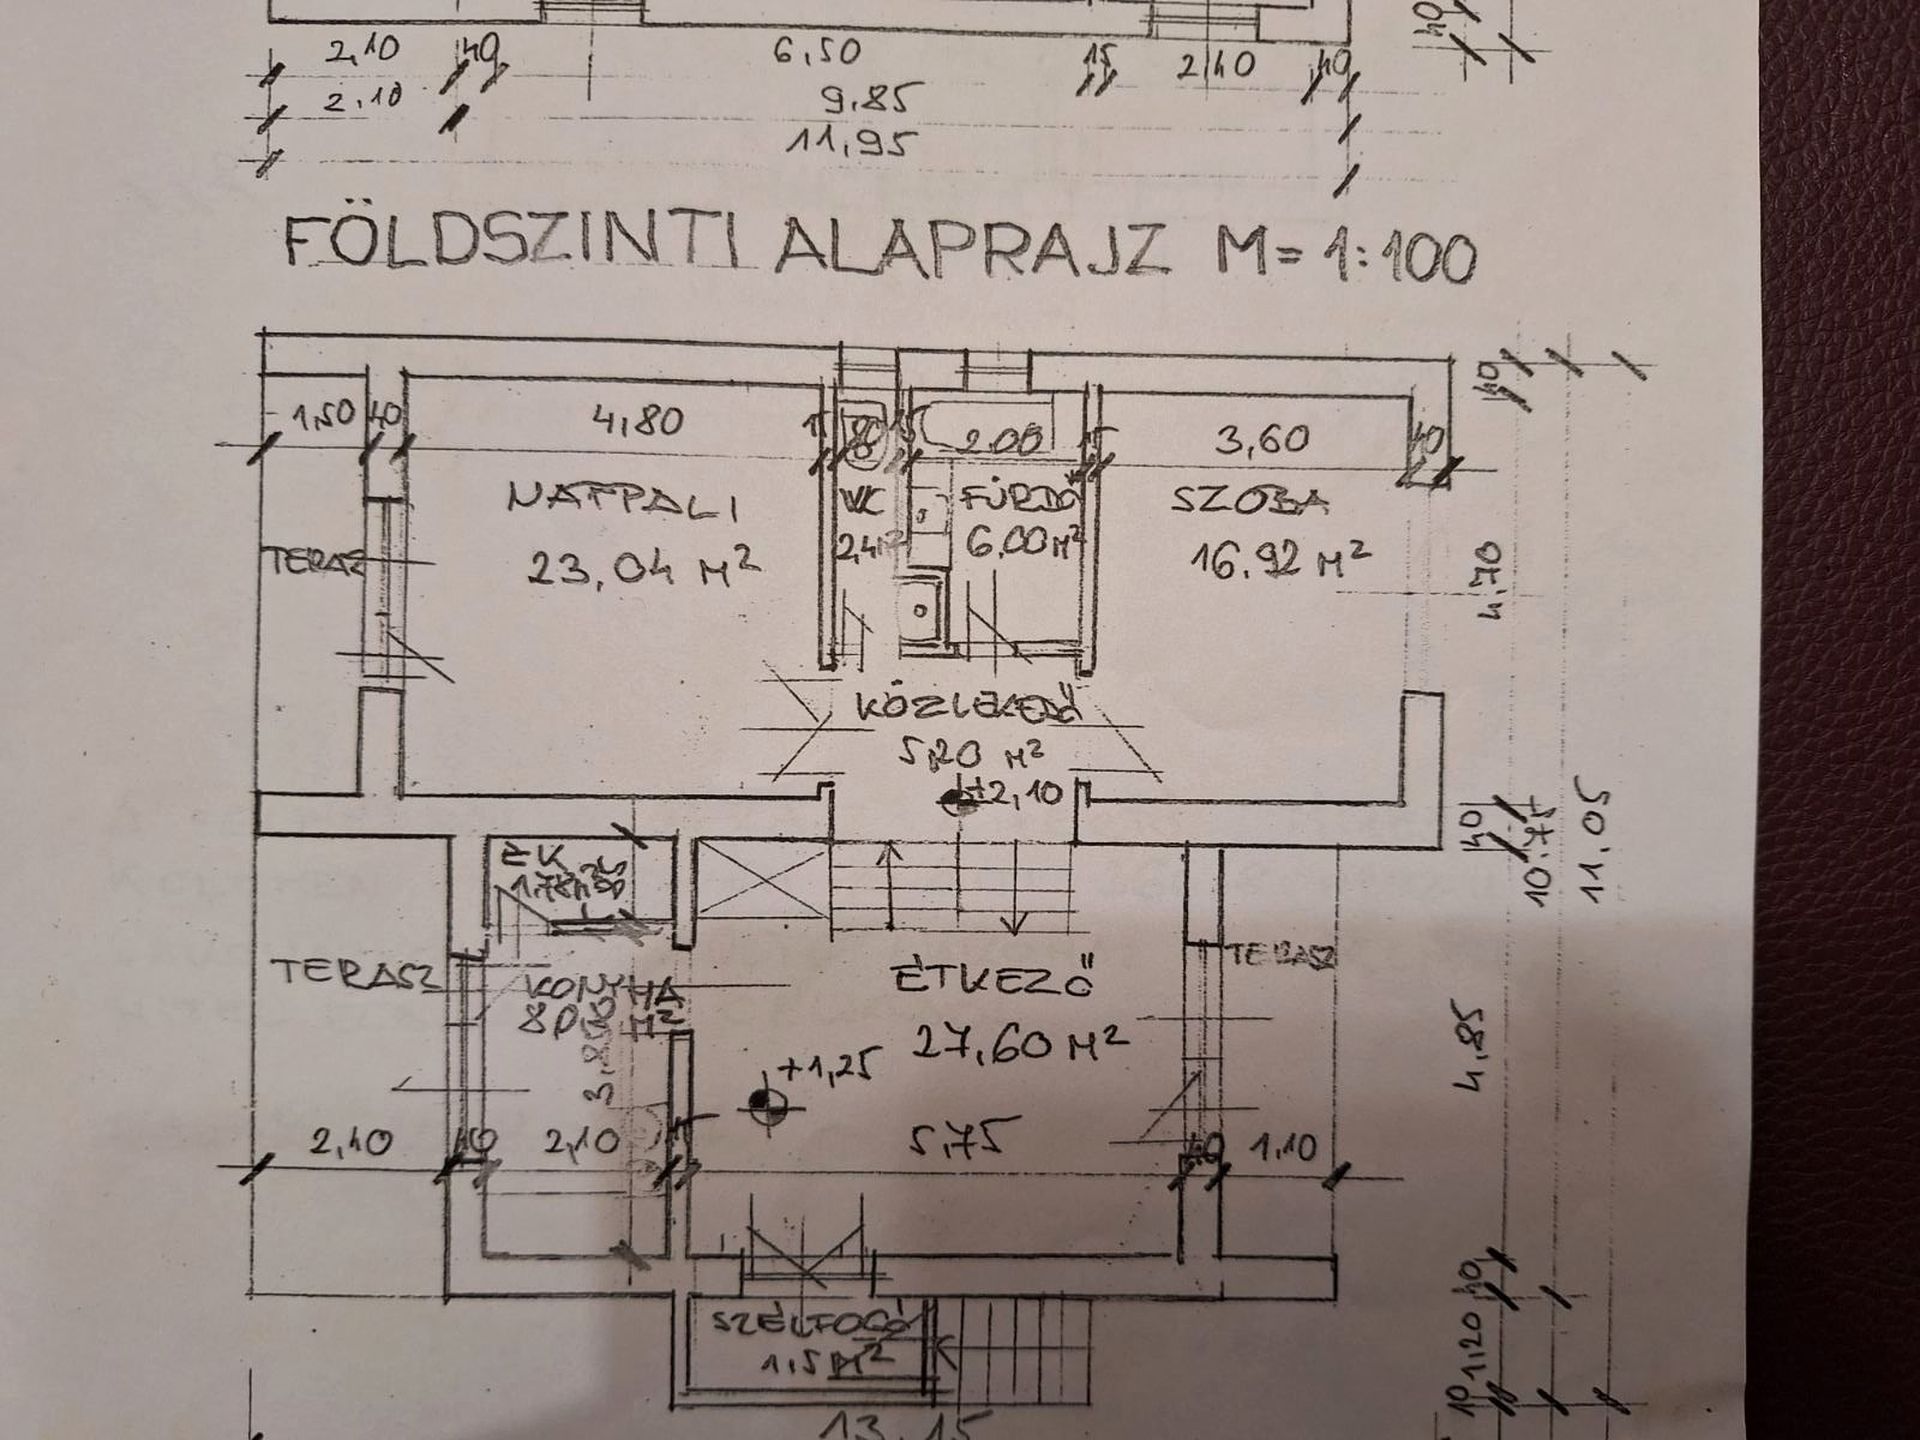 2,10 40 6,50 15 2,40 40
40
2.10 9.85
11,95
FÖLDSZINTI ALAPRAJZ M= 1:100
40
1,50 40 4,80 15 80 15 2.00 15 3,60 40
NAPPALI WC FÜRDŐ SZOBA
TERASZ 23,04 M² 2,4 M² 6,00 M² 16,92 M² 4,70
KÖZLEKEDŐ
5,20 M²
+2,10
40 10.75 11.05
ÉK
TERASZ KONYHA ÉTKEZŐ TERASZ
27,60 M²
3,85
+1,25 4,85
2,40 40 2,10 15 5,75 40 1,10
40
SZÉLFOGÓ
1,5 M² 1,20
10
13,15